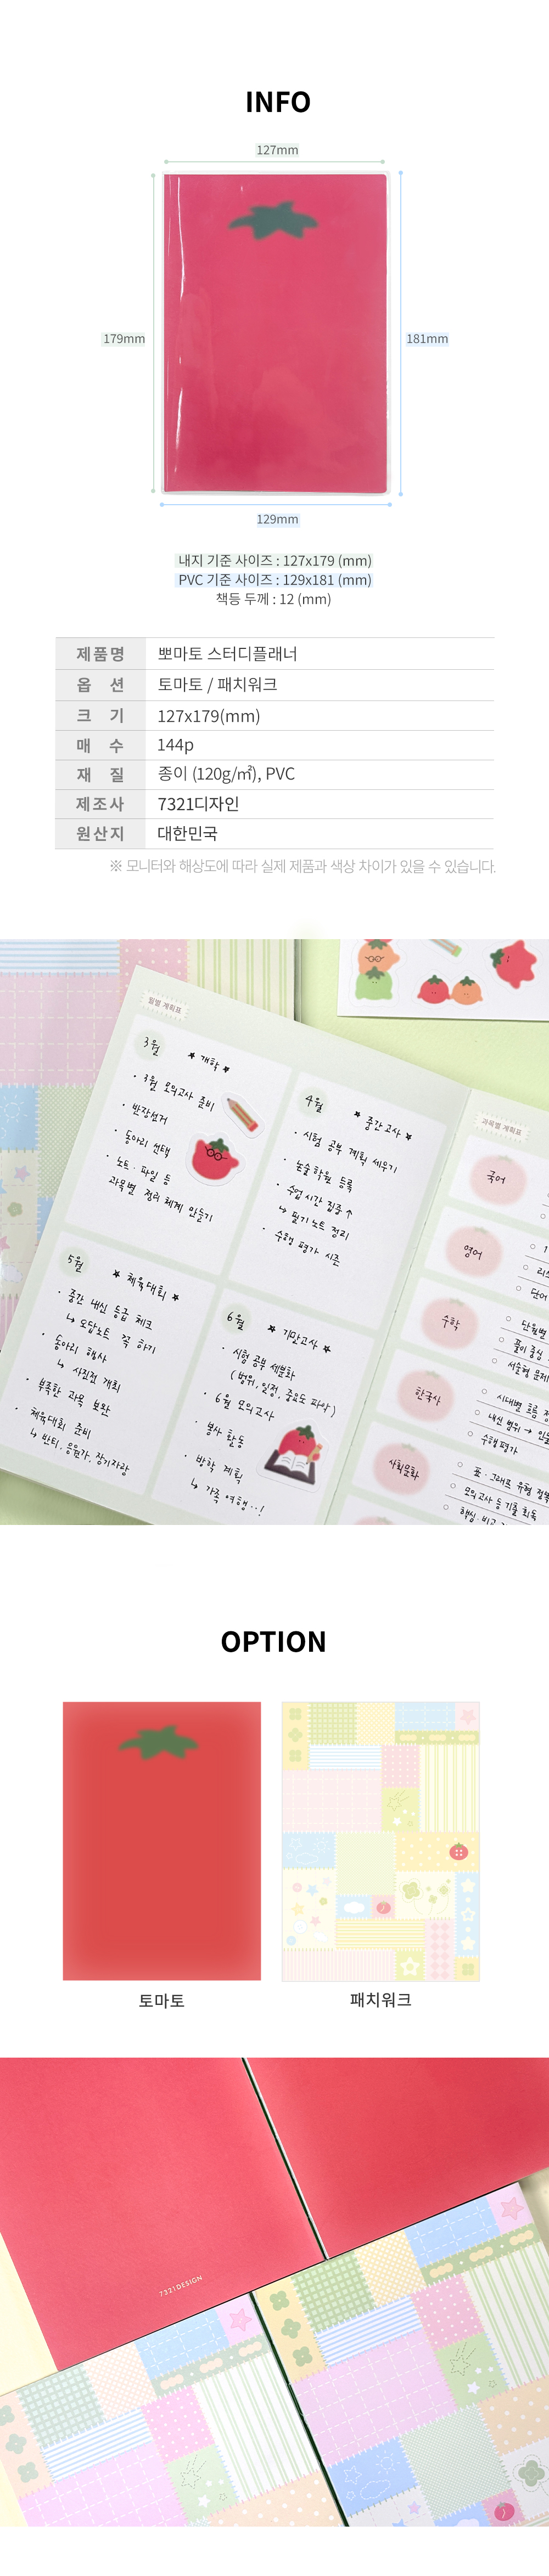 INFO
127mm
179mm
181mm
129mm
내지 기준 사이즈 : 127x179 (mm)
PVC 기준 사이즈 : 129x181 (mm)
책등 두께 : 12 (mm)
제품명 뽀마토 스터디플래너
옵 션 토마토 / 패치워크
크 기 127x179(mm)
매 수 144p
재 질 종이 (120g/㎡), PVC
제조사 7321디자인
원산지 대한민국
※ 모니터와 해상도에 따라 실제 제품과 색상 차이가 있을 수 있습니다.
월별 계획표
3월
★ 개학 ★
· 3월 모의고사 준비
· 반장선거
· 동아리 선택
· 노트 · 파일 등
과목별 정리 체계 만들기
4월
★ 중간고사 ★
· 시험 공부 계획 세우기
· 논술학원 등록
· 수업 시간 집중 ↑
↳ 필기 노트 정리
· 수행 평가 시즌
5월
★ 체육대회 ★
· 중간 내신 등급 체크
↳ 오답노트 꼭 하기
· 동아리 행사
↳ 사진전 개최
· 부족한 과목 보완
· 체육대회 준비
↳ 반티, 응원가, 장기자랑
6월
★ 기말고사 ★
· 시험 공부 세분화
(범위, 일정, 중요도 파악)
· 6월 모의고사
· 봉사 활동
· 방학 계획
↳ 가족 여행..!
과목별 계획표
국어
영어
단어
수학
단원별
풀이 중심
서술형 문제
한국사
시대별 흐름
내신 범위 →
수행평가
사회문화
표 · 그래프 유형
모의고사 등 기출
OPTION
토마토
패치워크
7321DESIGN